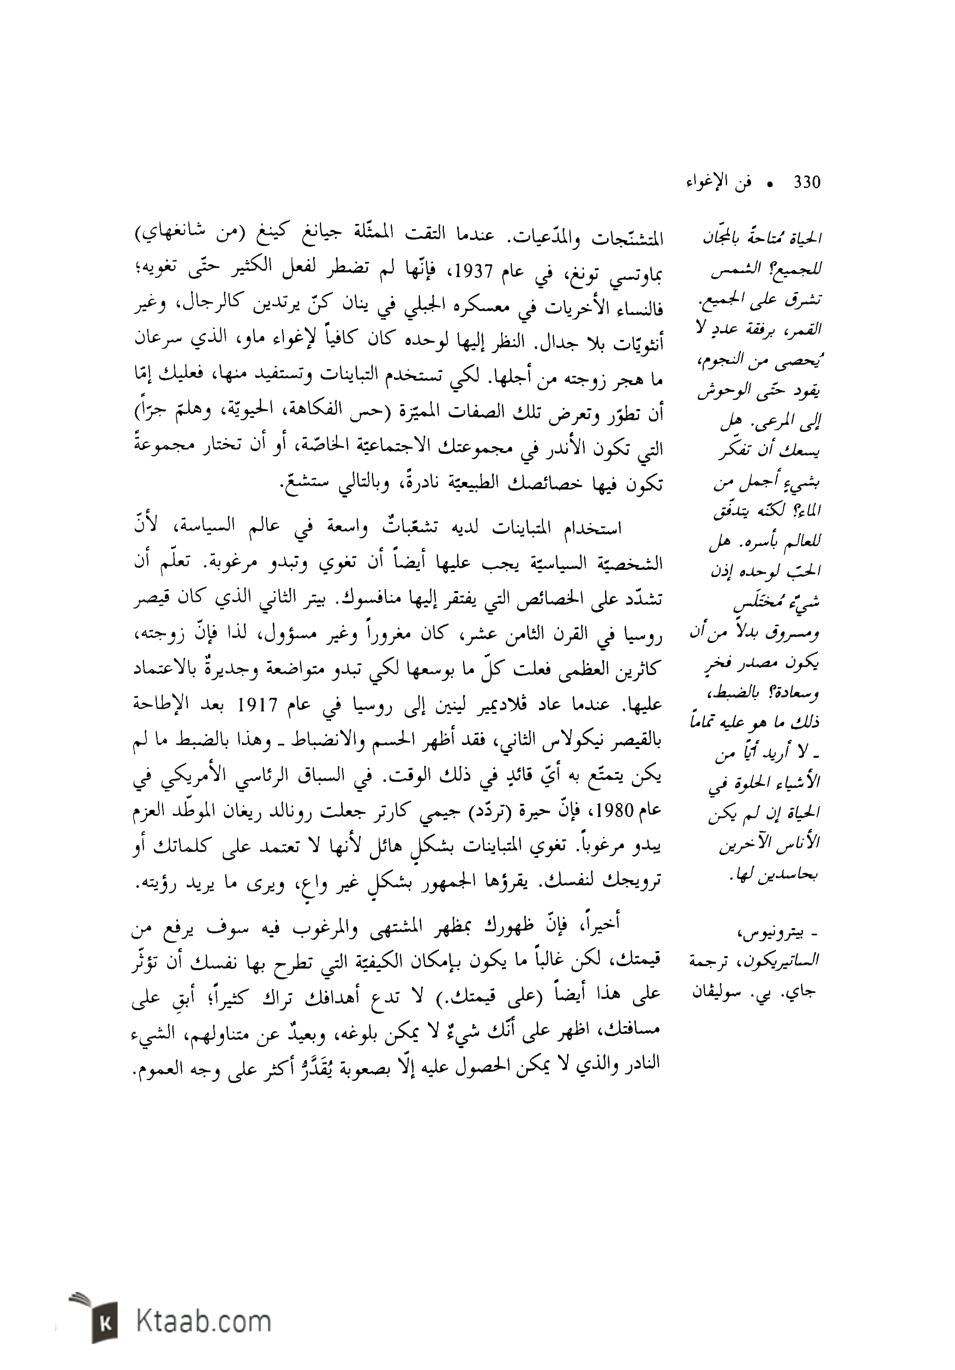 330 • فن الإغواء
المتشنّجات والمدّعيات. عندما التقت الممثّلة جيانغ كينغ (من شانغهاي)
بماوتسي تونغ، في عام 1937، فإنّها لم تضطر لفعل الكثير حتّى تغويه؛
فالنساء الأخريات في معسكره الجبلي في ينان كنّ يرتدين كالرجال، وغير
أنثويّات بلا جدال. النظر إليها لوحده كان كافياً لإغواء ماو، الذي سرعان
ما هجر زوجته من أجلها. لكي تستخدم التباينات وتستفيد منها، فعليك إمّا
أن تطوّر وتعرض تلك الصفات المميّزة (حس الفكاهة، الحيويّة، وهلمّ جرّاً)
التي تكون الأندر في مجموعتك الاجتماعيّة الخاصّة، أو أن تختار مجموعةً
تكون فيها خصائصك الطبيعيّة نادرةً، وبالتالي ستشعّ.
استخدام المتباينات لديه تشعّباتٌ واسعة في عالم السياسة، لأنّ
الشخصيّة السياسيّة يجب عليها أيضاً أن تغوي وتبدو مرغوبة. تعلّم أن
تشدّد على الخصائص التي يفتقر إليها منافسوك. بيتر الثاني الذي كان قيصر
روسيا في القرن الثامن عشر، كان مغروراً وغير مسؤول، لذا فإنّ زوجته،
كاثرين العظمى فعلت كلّ ما بوسعها لكي تبدو متواضعة وجديرةٌ بالاعتماد
عليها. عندما عاد ڤلاديمير لينين إلى روسيا في عام 1917 بعد الإطاحة
بالقيصر نيكولاس الثاني، فقد أظهر الحسم والانضباط ـ وهذا بالضبط ما لم
يكن يتمتّع به أيّ قائدٍ في ذلك الوقت. في السباق الرئاسي الأمريكي في
عام 1980، فإنّ حيرة (تردّد) جيمي كارتر جعلت رونالد ريغان الموطّد العزم
يبدو مرغوباً. تغوي المتباينات بشكلٍ هائل لأنها لا تعتمد على كلماتك أو
ترويجك لنفسك. يقرؤها الجمهور بشكلٍ غير واعٍ، ويرى ما يريد رؤيته.
أخيراً، فإنّ ظهورك بمظهر المشتهى والمرغوب فيه سوف يرفع من
قيمتك، لكن غالباً ما يكون بإمكان الكيفيّة التي تطرح بها نفسك أن تؤثّر
على هذا أيضاً (على قيمتك.) لا تدع أهدافك تراك كثيراً؛ أبقِ على
مسافتك، اظهر على أنّك شيءٌ لا يمكن بلوغه، وبعيدٌ عن متناولهم، الشيء
النادر والذي لا يمكن الحصول عليه إلّا بصعوبة يُقَدَّرُ أكثر على وجه العموم.
الحياة مُتاحةً بالمجّان
للجميع؟ الشمس
تشرق على الجميع.
القمر، برفقة عددٍ لا
يُحصى من النجوم،
يقود حتّى الوحوش
إلى المرعى. هل
يسعك أن تفكّر
بشيءٍ أجمل من
الماء؟ لكنّه يتدفّق
للعالم بأسره. هل
الحبّ لوحده إذن
شيءٌ مُختَلَس
ومسروق بدلاً من أن
يكون مصدر فخرٍ
وسعادة؟ بالضبط،
ذلك ما هو عليه تماماً
ـ لا أريد أيّاً من
الأشياء الحلوة في
الحياة إن لم يكن
الأناس الآخرين
بحاسدين لها.
ـ بيترونيوس،
الساتيريكون، ترجمة
جاي. بي. سوليڤان
Ktaab.com